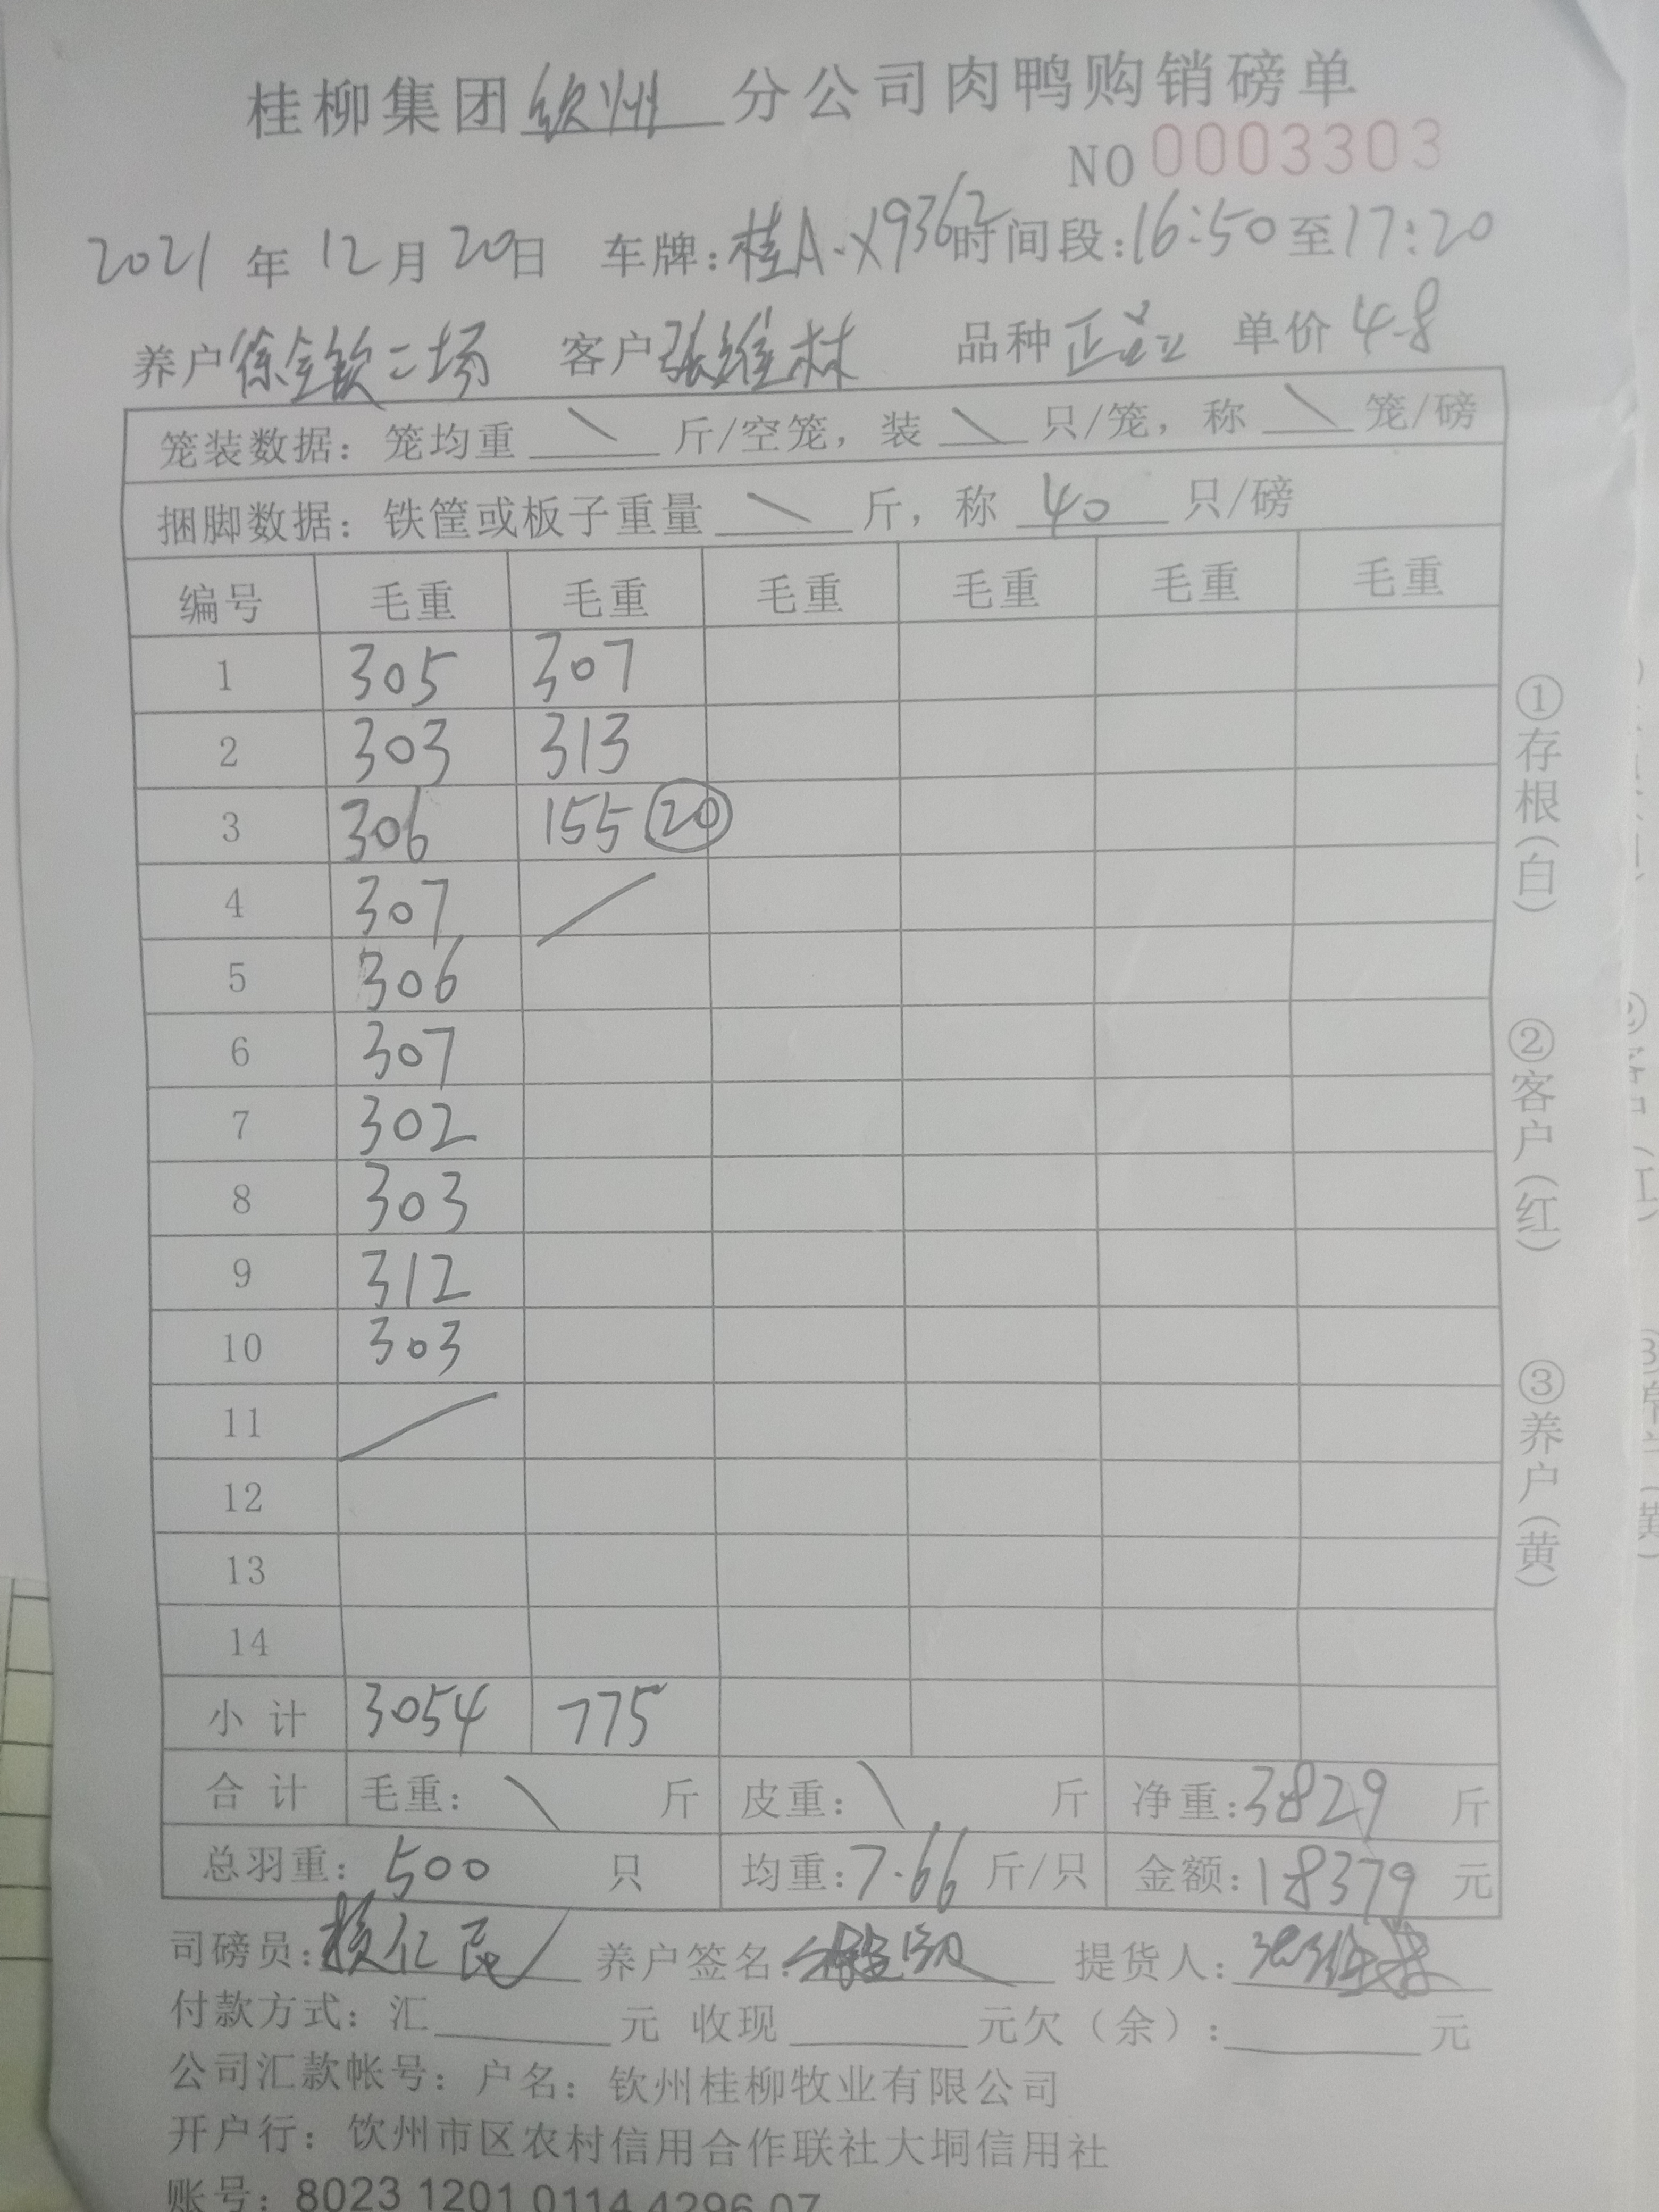 桂柳集团钦州分公司肉鸭购销磅单
NO 0003303
2021年12月20日 车牌:桂A·X9362时间段:16:50至17:20
养户徐金钦二场 客户张维林 品种 单价4.8
笼装数据: 笼均重 \ 斤/空笼, 装 \ 只/笼, 称 \ 笼/磅
捆脚数据: 铁筐或板子重量 \ 斤, 称 40 只/磅
编号 毛重 毛重 毛重 毛重 毛重 毛重
1 305 307
2 303 313
3 306 155 ⑳
4 307 /
5 306
6 307
7 302
8 303
9 312
10 303
11 /
12
13
14
小计 3054 775
合计 毛重: \ 斤 皮重: \ 斤 净重:3829 斤
总羽重: 500 只 均重:7.66 斤/只 金额:18379 元
司磅员: 养户签名: 提货人:
付款方式: 汇 元 收现 元欠(余): 元
公司汇款帐号: 户名: 钦州桂柳牧业有限公司
开户行: 钦州市区农村信用合作联社大垌信用社
账号: 8023 1201 0114 4296 07
①存根(白)
②客户(红)
③养户(黄)